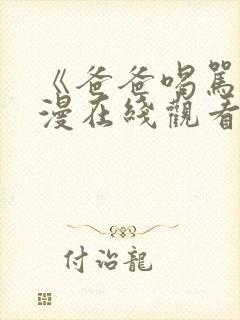 《爸爸喝罵
漫在綫觀看
付治龍